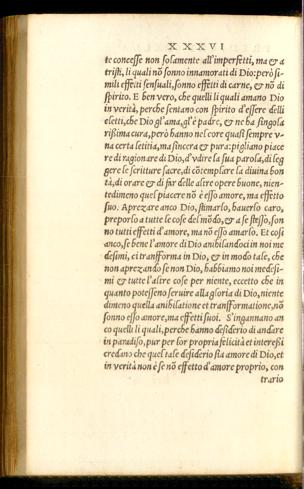 XXXVI
te concesse non solamente all'imperfetti, ma & a
tristi, li quali nõ sonno innamorati di Dio: però si-
mili effetti sensuali, sonno effetti di carne, & nõ di
spirito. E ben vero, che quelli li quali amano Dio
in verità, perche sentano con spirito d'essere delli
eletti, che Dio gl'ama, gl'è padre, & ne ha singola
rißima cura, però hanno nel core quasi sempre v-
na certa letitia, ma sincera & pura: pigliano piace
re di ragionare di Dio, d'vdire la sua parola, di leg
gere le scritture sacre, di cõtemplare la diuina bon
tà, di orare & di far delle altre opere buone, nien-
tedimeno quel piacere nõ è esso amore, ma effetto
suo. Aprezare anco Dio, stimarlo, hauerlo caro,
preporlo a tutte le cose del mõdo, & a se stesso, son
no tutti effetti d'amore, ma nõ esso amarlo. Et cosi
anco, se bene l'amore di Dio anibilandoci in noi me
desimi, ci transforma in Dio, & in modo tale, che
non aprezando se non Dio, habbiamo noi medesi-
mi & tutte l'altre cose per niente, eccetto che in
quanto potesseno seruire alla gloria di Dio, niente
dimeno quella anibilatione et transformatione, nõ
sonno esso amore, ma effetti suoi. S'ingannano an
co quelli li quali, perche hanno desiderio di andare
in paradiso, pur per lor propria felicità et intereßi
credano che quel tale desiderio sia amore di Dio, et
in verità non è se nõ effetto d'amore proprio, con
trario